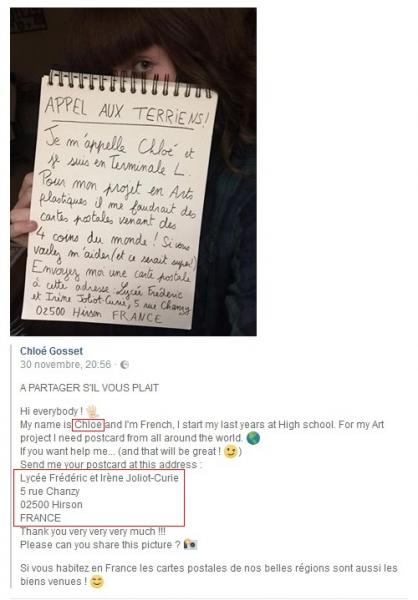 APPEL AUX TERRIENS!
Je m'appelle Chloé et
je suis en Terminale L.
Pour mon projet en Arts
plastiques il me faudrait des
cartes postales venant des
4 coins du monde ! Si vous
voulez m'aider (et ce serait super!)
Envoyez moi une carte postale
à cette adresse : Lycée Fréderic
et Irène Joliot-Curie, 5 rue Chanzy
02500 Hirson FRANCE
Chloé Gosset
30 novembre, 20:56 ·
A PARTAGER S'IL VOUS PLAIT
Hi everybody ! 👋
My name is Chloé and I'm French, I start my last years at High school. For my Art
project I need postcard from all around the world. 🌍
If you want help me... (and that will be great ! 😉)
Send me your postcard at this address :
Lycée Frédéric et Irène Joliot-Curie
5 rue Chanzy
02500 Hirson
FRANCE
Thank you very very very much !!!
Please can you share this picture ? 📸
Si vous habitez en France les cartes postales de nos belles régions sont aussi les
biens venues ! 😊